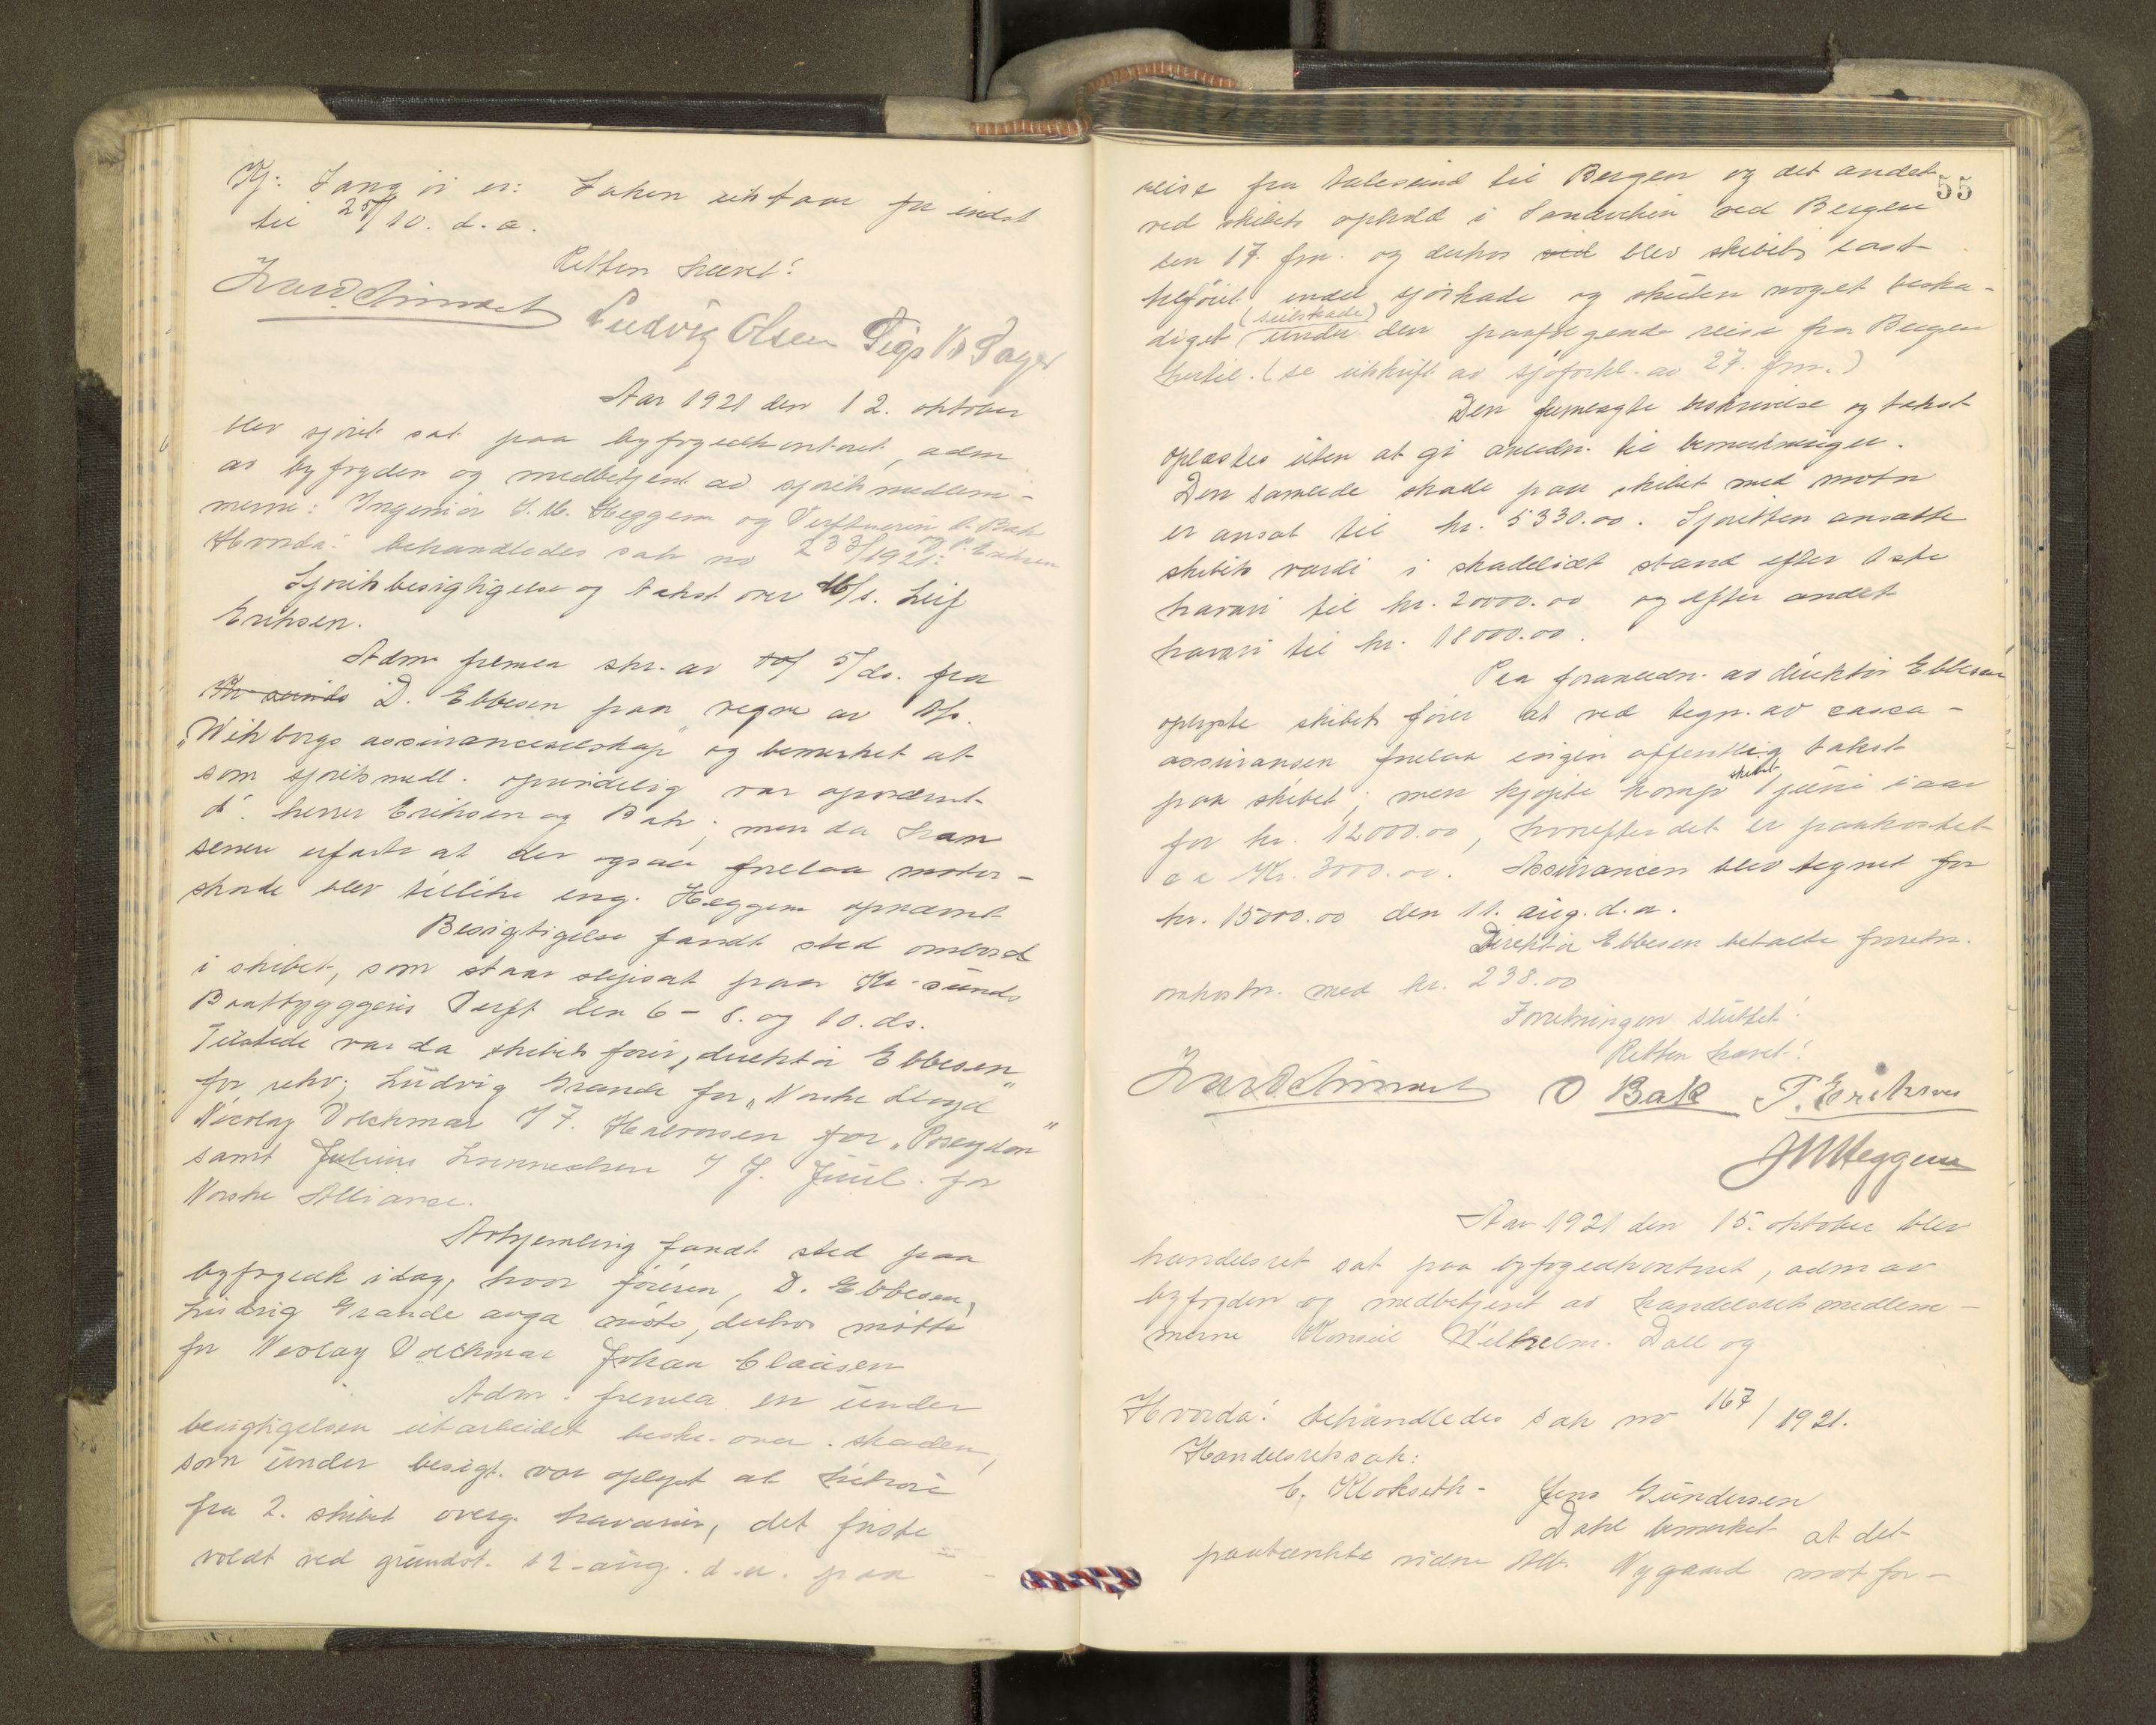 Kj: Saken utstaar for indst
til 25/10. d. a.
Retten hævet!
Ludvig Olsen Sigv
Aar 1921 den 12. oktober
blev sjøret sat paa byfogedkontoret, adm
av byfogden og medbetjent av sjøretsmedlem-
merne: Ingeniør J. M. Heggem og O. Bak
og P. Eriksen
Hvorda: behandledes sak no 233/1921:
Sjøretsbesigtigelse og takst over M/s. Leif
Eriksen.
Adm fremla skr. av 5/ds. fra
D. Ebbesen paa vegne av A/s.
"Wihborgs assuranceselskap" og bemerket at
som sjøretsmedl. oprindelig var opnævnt
d'. herrer Eriksen og Bak; men da han
senere erfarte at der ogsaa forelaa motor-
skade blev tillike ing. Heggem opnævnt
Besigtigelse fandt sted ombord
i skibet, som staar slipsat paa Kr.sunds
Baatbyggeris Verft den 6 - 8. og 10. ds.
Tilstede var da skibets fører, direktør Ebbesen
for rekv; Ludvig Grande for "Norske Lloyd"
Nicolay Volckmar v/ F. Halvorsen for "Poseydon"
samt Julius v/ J. Juul for
Norske Alliance.
Avhjemling fandt sted paa
byfogedk idag, hvor føreren, D. Ebbesen,
Ludvig Grande avga møte, derhos møtte
for Nicolay Volckmar Johan Clausen
Adm. fremla en under
besigtigelsen utarbeidet beskr. over skaden,
som under besigt. var oplyst at hitrøre
fra 2. skibet overg. havarier, det første
voldt ved grundst. 12 aug. d. a. paa
55
reise fra Aalesund til Bergen og det andet
ved skibets ophold i Sandviken ved Bergen
den 17. fm. og derhos ved blev skibets last
tilføiet endel sjøskade og skuten noget beska-
(seilskade)
diget under den paafølgende reise fra Bergen
hertil. (se utskrift av sjøforkl. av 27. fm.)
Den fremlagte beskrivelse og takst
oplæstes uten at gi anledn. til bemerkninger.
Den samlede skade paa skibet med motor
er ansat til kr. 5330.00. Sjøretten ansatte
skibets værdi i skadelidt stand efter 1ste
havari til kr. 20000.00 og efter andet
havari til kr. 18000.00.
Paa foranledn. av direktør Ebbesen
oplyste skibets fører at ved tegn. av casco-
assuransen forelaa ingen offentlig takst
skibet
paa skibet; men kjøpte komp 1 juni iaar
for kr. 12000.00, hvorefter det er paakostet
ca Kr. 3000.00. Assurancen blev tegnet for
kr. 15000.00 den 11. aug. d. a.
Direktør Ebbesen betalte forretn.
omkostn. med kr. 238.00
Forretningen sluttet!
Retten hævet!
O Bak P. Eriksen
J M Heggem
Aar 1921 den 15. oktober blev
handelsret sat paa byfogedkontoret, adm av
byfogden og medbetjent av handelsretsmedlem-
merne Konsul Wilhelm. Dall og
Hvorda: behandledes sak no 167/1921.
Handelsretssak:
C. Klokseth - Jens Gundersen
Dahl bemerket at det
paatænkte vidne Alb. Nygaard mot for-